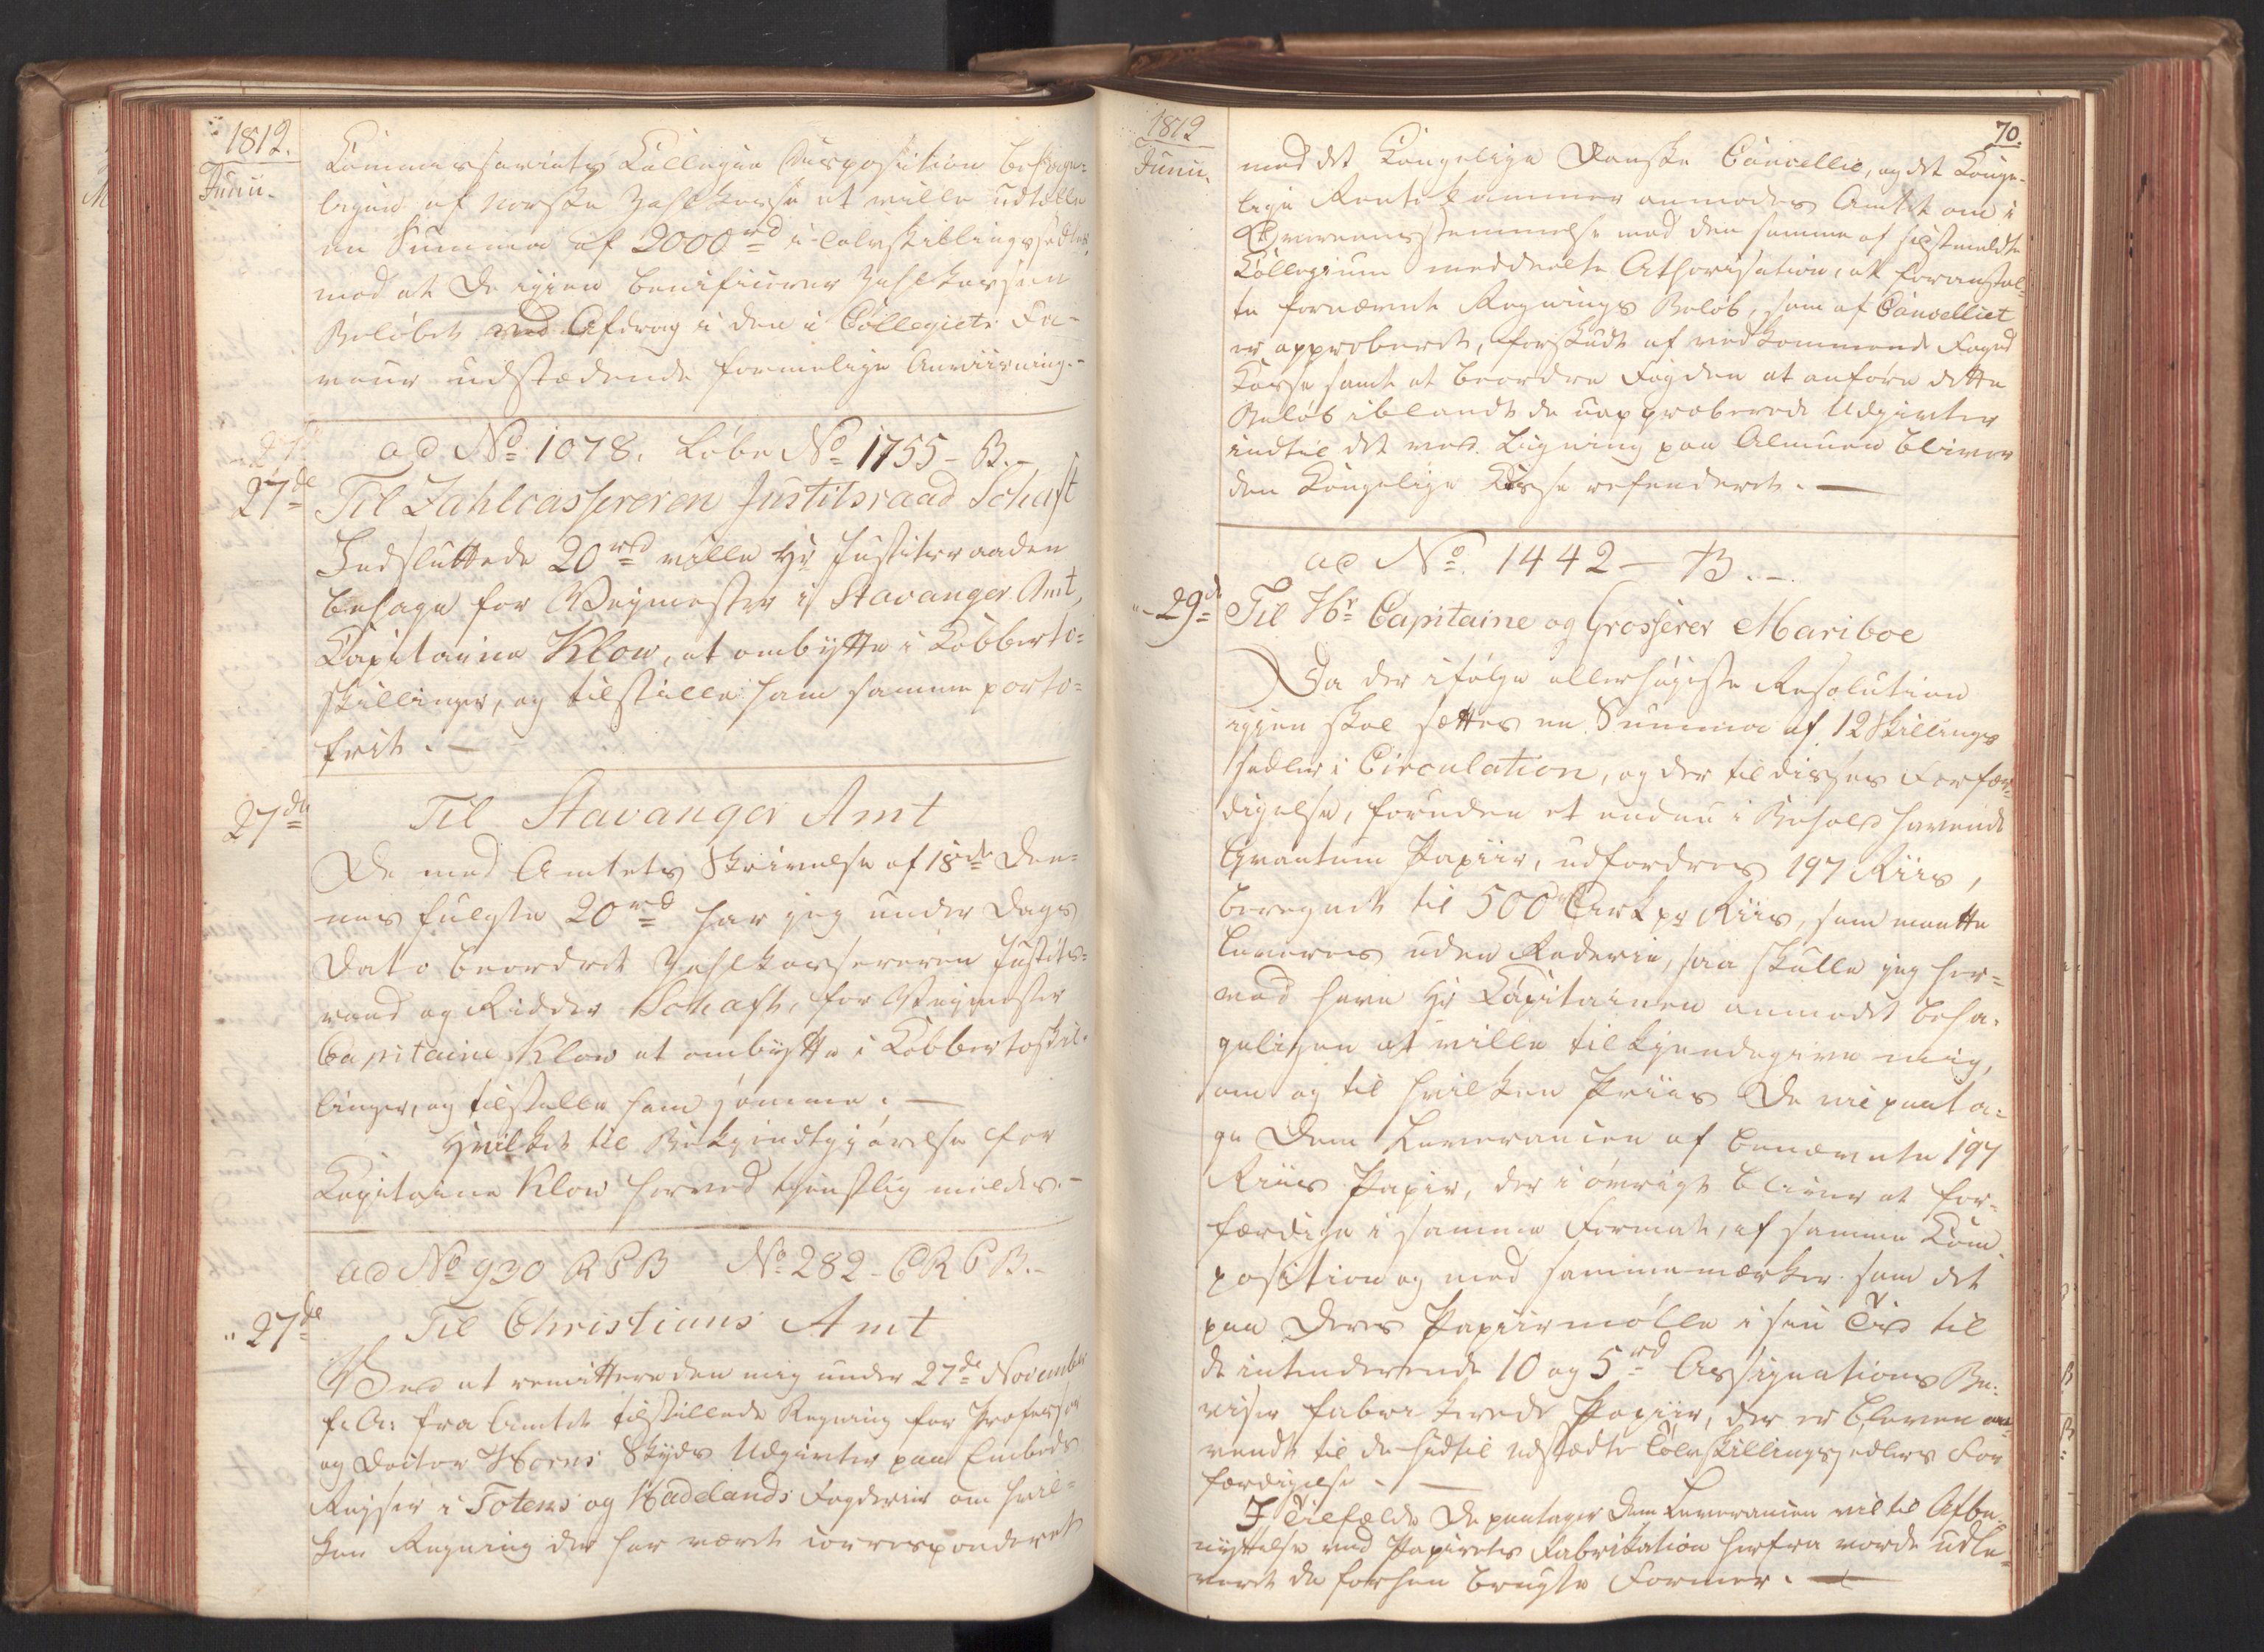 1812.
Junii.
Kommissariats Collegiets Disposition behage-
ligen af norske Zahlkasse at ville udtælle
en Summa af 2000 rd i tolvskillingssedler,
mod at De igien benificerer Zahlkassen
Beløbet ved Afdrag i den i Collegiets Fa-
veur udstædende formelige Anviisning.-
ad No 1078. Løbe No 1755 - B.-
27de
Til Zahlcassereren Justitsraad Schaft
Indsluttede 20 rd ville Hr Justitsraaden
behage for Veymester i Stavanger Amt,
Capitaine Klow, at ombytte i Kobberto-
skillinger, og tilstille ham samme porto-
frit.-
27de
Til Stavanger Amt
De med Amtets Skrivelse af 18de den-
nes fulgte 20 rd har jeg under Dags
Dato beordret Zahlkassereren Justits-
raad og Ridder Schaft, for Veymester
Capitaine Klow at ombytte i Kobbertoskil-
linger, og tilstille ham samme.-
Hvilket til Bekiendtgjørelse for
Kapitaine Klow herved tienstlig meldes.-
ad No 930 R P B No 282 - C R P B.-
" 27de
Til Christians Amt
Ved at remittere den mig under 27de November
f: A: fra Amtet tilstillede Regning for Professor
og Doctor Horns Skyds Udgivter paa Embeds
Reyser i Totens og Hadelands Fogderie om hvil-
ken Regning der har været corresponderet
1812
Junii.
70.
med det Kongelige Danske Cancellie, og det Konge-
lige Rentekammer anmodes Amtet om i
Overeensstemmelse med den samme af sidstmeldte
Collegium meddeelte Athorisation, at foranstal-
te fornævnte Regnings Beløb, som af Cancelliet
er approberet, forskudt af vedkommende Foged
Kasse samt at beordre Fogden at anføre dette
Beløb iblandt de uapproberede Udgivter
indtil det ved Ligning paa Almuen bliver
den Kongelige Kasse refunderet.-
ad No 1442 - B.-
" 29de
Til Hr Capitaine og Grosserer Mariboe
Da der ifølge allerhøieste Resolution
igien skal sættes en Summa af 12 Skillings
sedler i Circulation, og der til disses Forfær-
digelse, foruden et endnu i Behold havende
Qvantum Papiir, udfordres 197 Riis,
beregnet til 500 Ark pr Riis, som maatte
leveres uden Raderie, saa skulle jeg her-
ved have Hr Capitainen anmodet beha-
geligen at ville tilkjendegive mig,
om og til hvilken Priis De vil paata-
ge Dem Leverancen af benævnte 197
Riis Papir, der i øvrigt bliver at for-
færdige i samme Format, af samme Kom-
position og med samme mærker som det
paa Deres Papiirmølle i sin Tid til
de intenderende 10 og 5 rd Assignations Be-
viser fabrikerede Papiir, der er bleven an-
vendt til de hidtil udstædte Tolvskillingssedlers For
færdigelse.-
I Tilfælde De paatager Dem Leverancen vil til Afbe-
nyttelse ved Papirets Fabrikation herfra vorde udle-
veret de forhen brugte Former.-